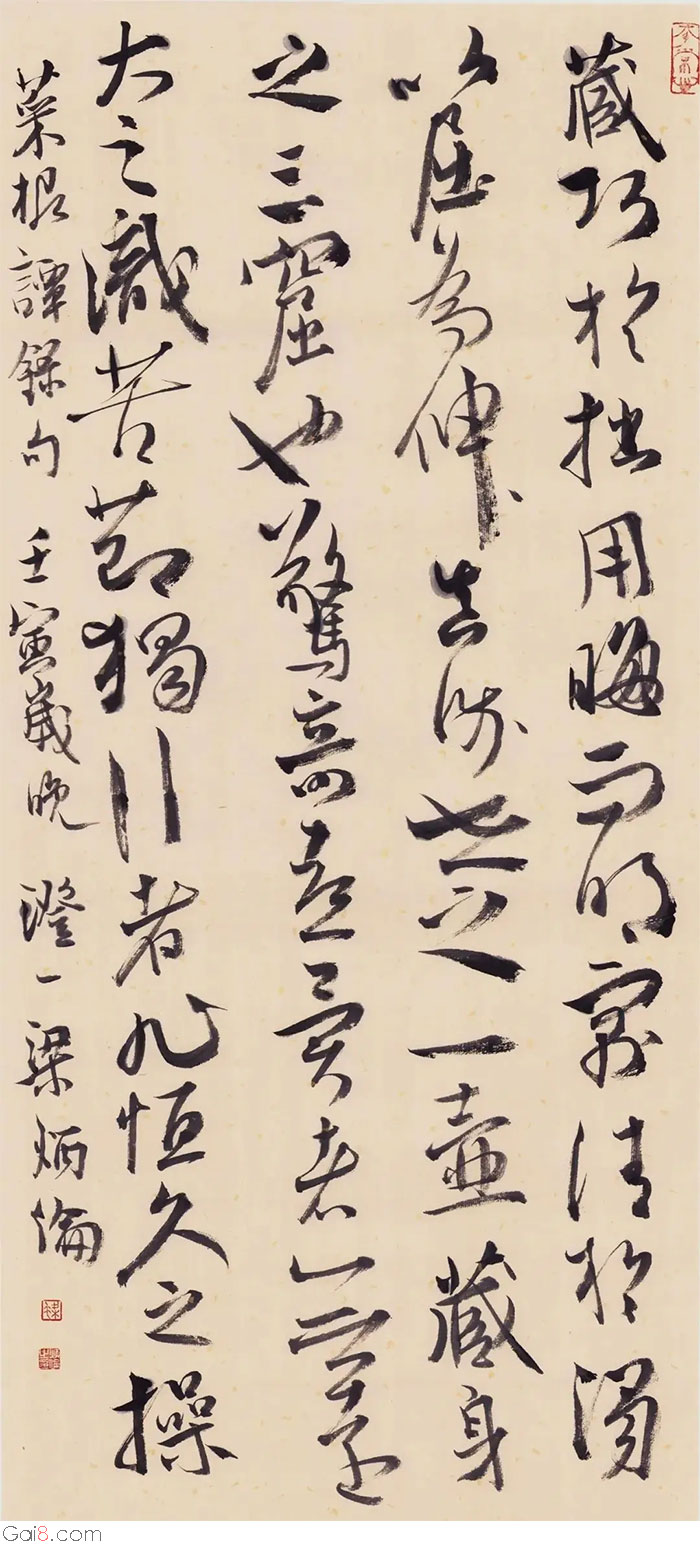 藏巧於拙用晦而明寓清於濁
以屈為伸真涉世之一壺藏身
之三窟也驚奇喜異者無遠
大之識苦節獨行者非恒久之操
菜根譚錄句 壬寅歲晚 澄一梁炳倫
Gai8.com